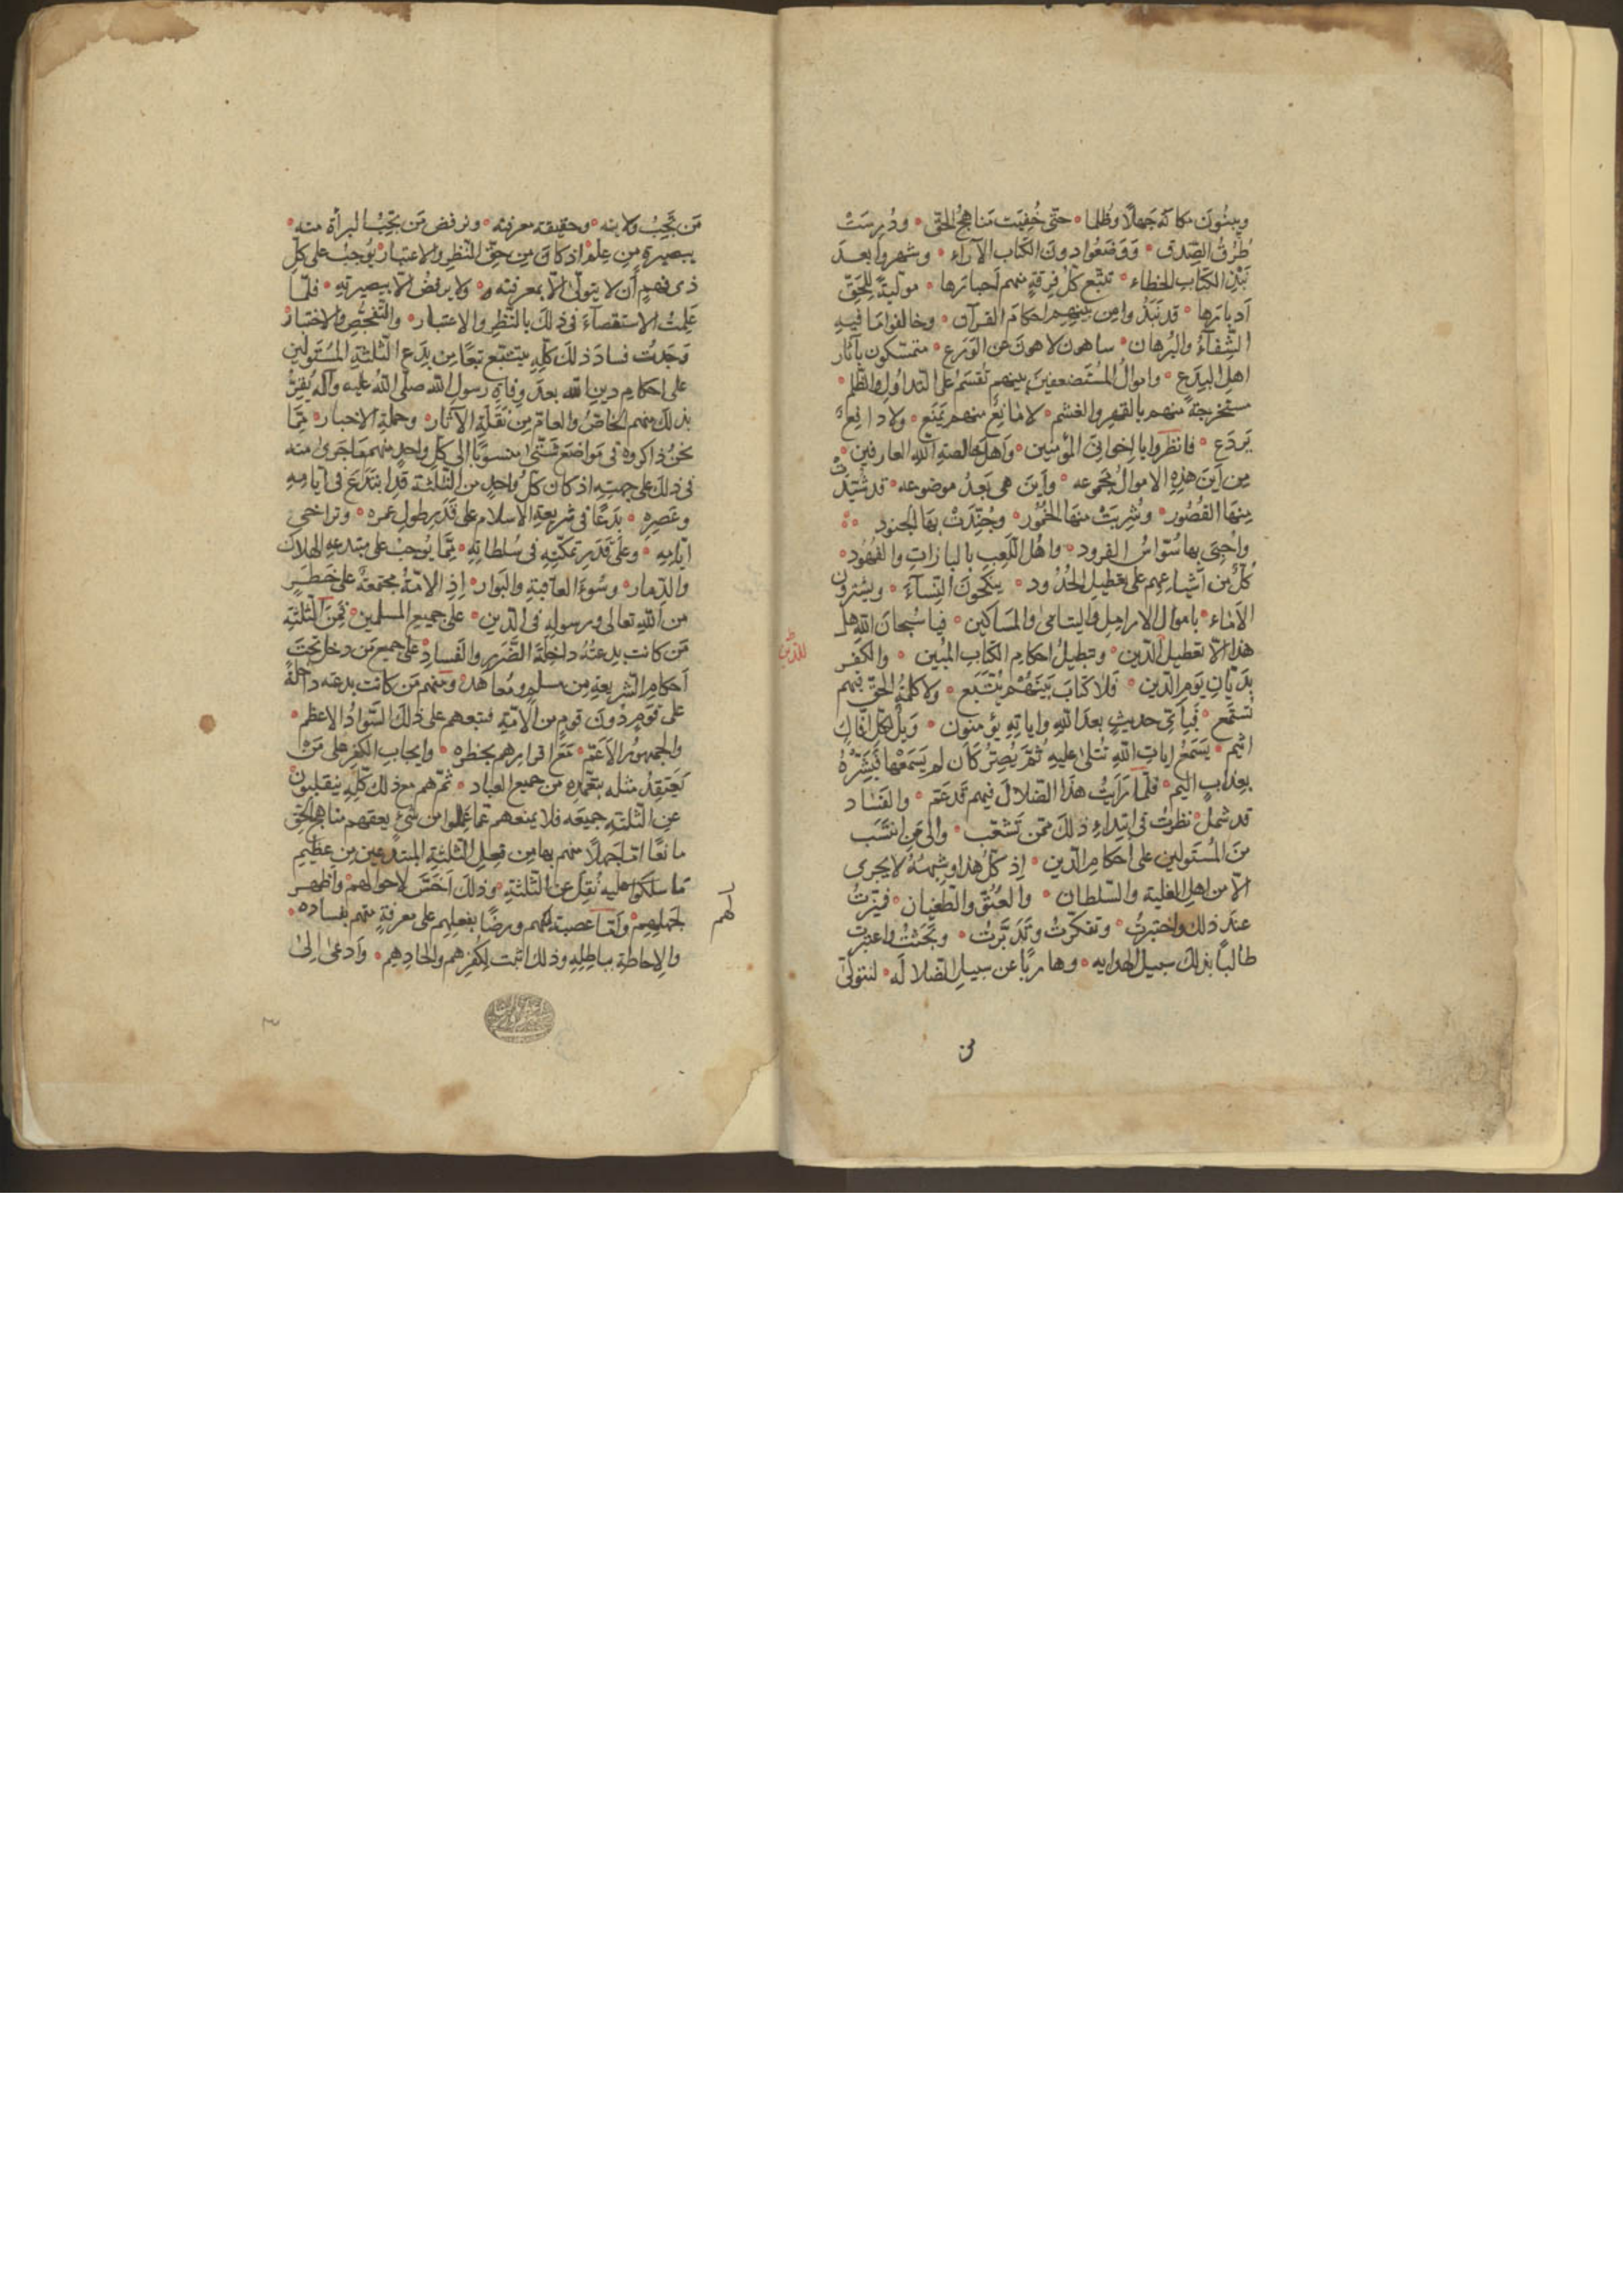 ويبنون مكانه جهلا وظلما حتى خفيت مناهج الحق ودرست
طرق الصدق ووضعوا دون الكتاب الآراء وشهروا بعد
نبذ الكتاب الخطاء تتبع كل فرقة منهم احبارها مولية للحق
ادبارها قد نبذوا من بينهم احكام القرآن وخالفوا ما فيه
الشفآء والبرهان ساهون لاهون عن الورع متمسكون بآثار
اهل البدع واموال المستضعفين بينهم تقسم على التداول والظلم
مستخرجة منهم بالقهر والغشم لا مانع منهم يمنع ولا دافع
يردع فانظروا يا اخواني المؤمنين واهل خالصة الله العارفين
من اين هذه الاموال مجموعه واين هي بعد موضوعه قد شيدت
منها القصور وشربت منها الخمور وجندت بها الجنود
واجبى بها سواس القرود واهل اللعب بالبازات والفهود
كل من اشياعهم على تعطيل الحدود ينكحون النسآء ويشترون
الاماء باموال الارامل واليتامى والمساكين فيا سبحان الله هل
هذا الا تعطيل الدين وتبطيل احكام الكتاب المبين والكفر
للدين
بديان يوم الدين فلا كتاب بينهم يتبع ولا كلمة الحق فيهم
تستمع فباي حديث بعد الله واياته يؤمنون ويل لكل افاك
اثيم يسمع ايات الله تتلى عليه ثم يصر كان لم يسمعها فبشره
بعذاب اليم فلما رايت هذا الضلال فيهم قد عم والفساد
قد شمل نظرت في ابتداء ذلك ممن تشعب والى من انتسب
من المستولين على احكام الدين اذ كل هذا وشبهه لا يجرى
الا من اهل الغلبة والسلطان والعتو والطغيان فميزت
عند ذلك واختبرت وتفكرت وتدبرت وبحثت واعتبرت
طالبا بذلك سبيل الهدايه وهاربا عن سبيل الضلاله لنتولى
من
من تجب ولايته وحقيقة معرفته ونرفض من تجب البرأة منه
ببصيرة من علم اذ كان من حق النظر والاعتبار يوجب على كل
ذى فهم ان لا يتولى الا بمعرفته ولا يرفض الا ببصيرته فلما
علمت الاستقصآء فى ذلك بالنظر والاعتبار والتفحص والاختبار
وجدت فساد ذلك كله يتتبع تبعا من بدع الثلثة المستولين
على احكام دين الله بعد وفاة رسول الله صلى الله عليه وآله يقر
بذلك منهم الخاص والعام من نقلة الآثار وحملة الاخبار مما
نحن ذاكروه فى مواضع شتى منسوبا الى كل واحد منهم ما جرى منه
فى ذلك على جهته اذ كان كل واحد من الثلثة قد ابتدع فى ايامه
وعصره بدعا فى شريعة الاسلام على قدر طول عمره وتراخى
ايامه وعلى قدر تمكنه فى سلطانه مما يوجب على مبتدعه الهلاك
والدمار وسوء العاقبة والبوار اذ الامة مجتمعة على خطر
من الله تعالى ورسوله فى الدين على جميع المسلمين فمن الثلثة
من كانت بدعته داخلة الضرر والفساد على جميع من دخل تحت
احكام الشريعة من مسلم ومعاهد ومنهم من كانت بدعته داخلة
على قوم دون قوم من الامة فتبعهم على ذلك السواد الاعظم
والجمهور الاعم مع اقرارهم بحظره وايجاب الكفر على من
يعتقد مثله بتعمده من جميع العباد ثم هم مع ذلك كله ينقلبون
عن الثلثة جميعه فلا يمنعهم عما عملوا من شئ بعقدهم مناهج الحق
مانعا اما جهلا منهم بها من فعل الثلثة المبتدعين من عظيم
ما سلكوا عليه نقل عن الثلثة وذلك اخس لاحوالهم واظهر
لجهلهم واما عصبة لهم ورضا بفعلهم على معرفة منهم بفساده
والاحاطة بباطله وذلك اثبت لكفرهم والحادهم وادعى الى